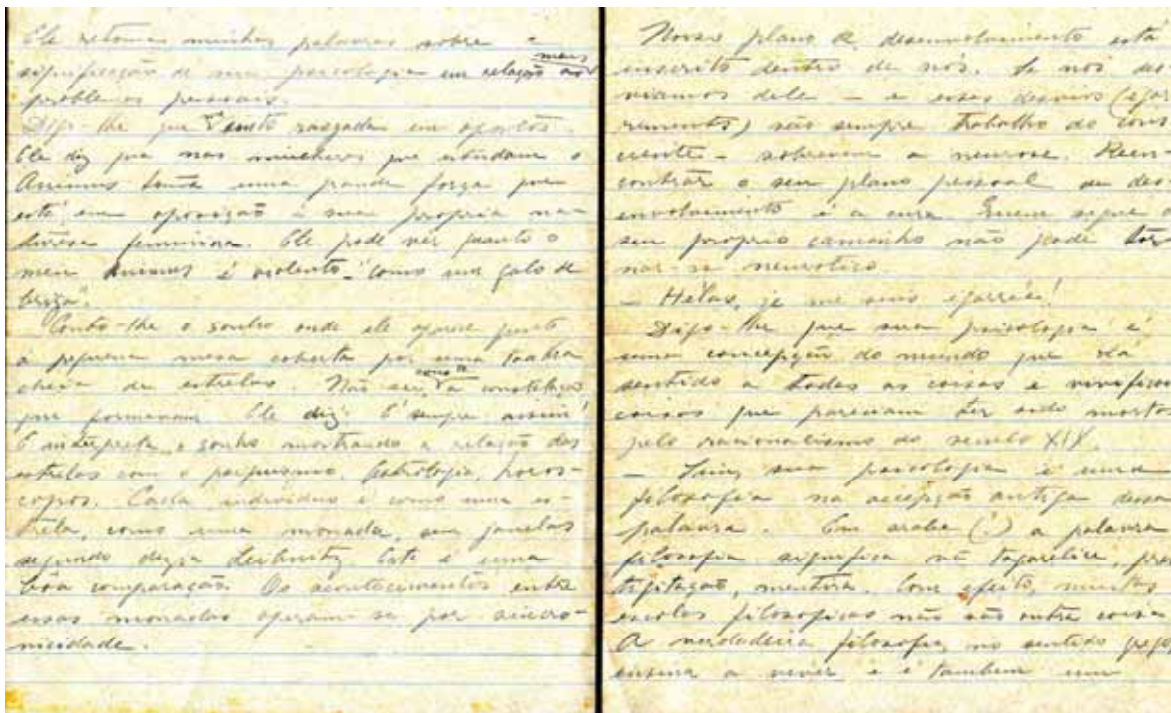 Ele retoma minhas palavras sobre a
significação de sua psicologia em relação aos
meus
problemas pessoais.
Digo-lhe que sinto rasgada em opostos.
Ele diz que nas mulheres que estudam o
Animus toma uma grande força que
está em oposição à sua propria na-
tureza feminina. Ele pode ver quanto o
meu Animus é violento "como um galo de
briga".
Conto-lhe o sonho onde ele aparece junto
à pequena mesa coberta por uma toalha
cheia de estrelas. Não sei a constelação
como é
que formavam. Ele diz: É sempre assim!
E interpreta o sonho mostrando a relação das
estrelas com o pequenino. Astrologia, horos-
copos. Cada individuo é como uma es-
trela, como uma monada, sem janelas
segundo dizia Leibnitz. Esta é uma
bôa comparação. Os acontecimentos entre
essas monadas operam-se por sincro-
nicidade.
Nosso plano de desenvolvimento está
inscrito dentro de nós. Se nos des-
viamos dele — e esses desvios (égar-
rements) são sempre trabalho do cons
ciente — sobrevem a neurose. Reen-
contrar o seu plano pessoal de des-
envolvimento é a cura. Quem segue o
seu proprio caminho não pode tor
nar-se neurotico.
— Hélas, je me suis égarrée!
Digo-lhe que sua psicologia é
uma concepção do mundo que dá
sentido a todas as coisas e vivifica
coisas que pareciam ter sido mortas
pelo racionalismo do seculo XIX.
— Sim, sua psicologia é uma
filosofia na accepção antiga dessa
palavra. Em arabe (?) a palavra
filosofia significa tagarelice,
mentira. Com efeito, muitas
escolas filosoficas não são outra coisa
A verdadeira filosofia, no sentido grego,
ensina a viver e é tambem um